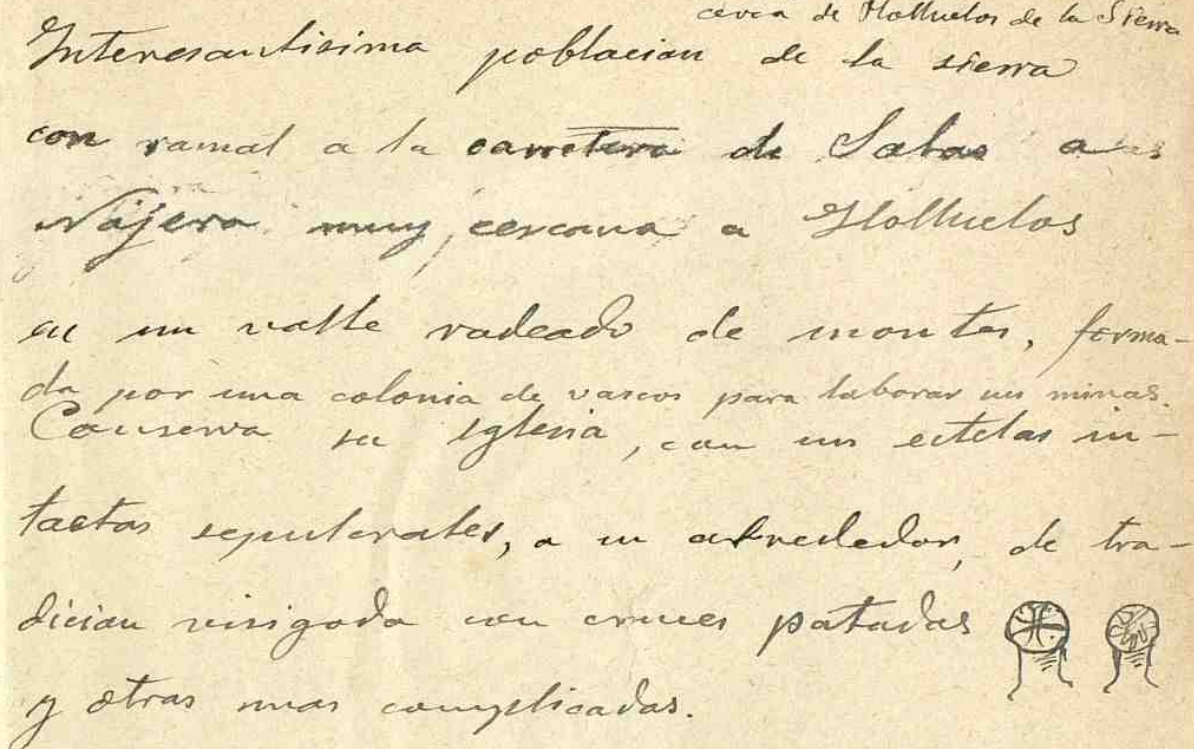 cerca de Holluelos de la Sierra
Interesantisima poblacion de la sierra
con ramal a la carretera de Salas a
Nájera muy cercana a Holluelos
en un valle rodeado de montes, forma-
da por una colonia de vascos para laborar sus minas.
Conserva su iglesia, con sus estelas in-
tactas sepulcrales, a su alrededor, de tra-
dicion visigoda con cruces patadas
y otras mas complicadas.